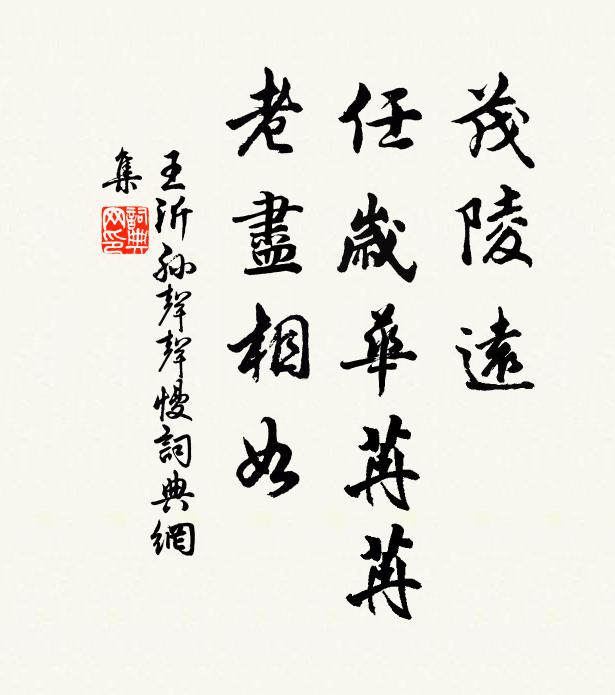 茂陵遠
任歲華苒苒
老盡相如
王沂孫聲聲慢詞典網
集
詞典網印